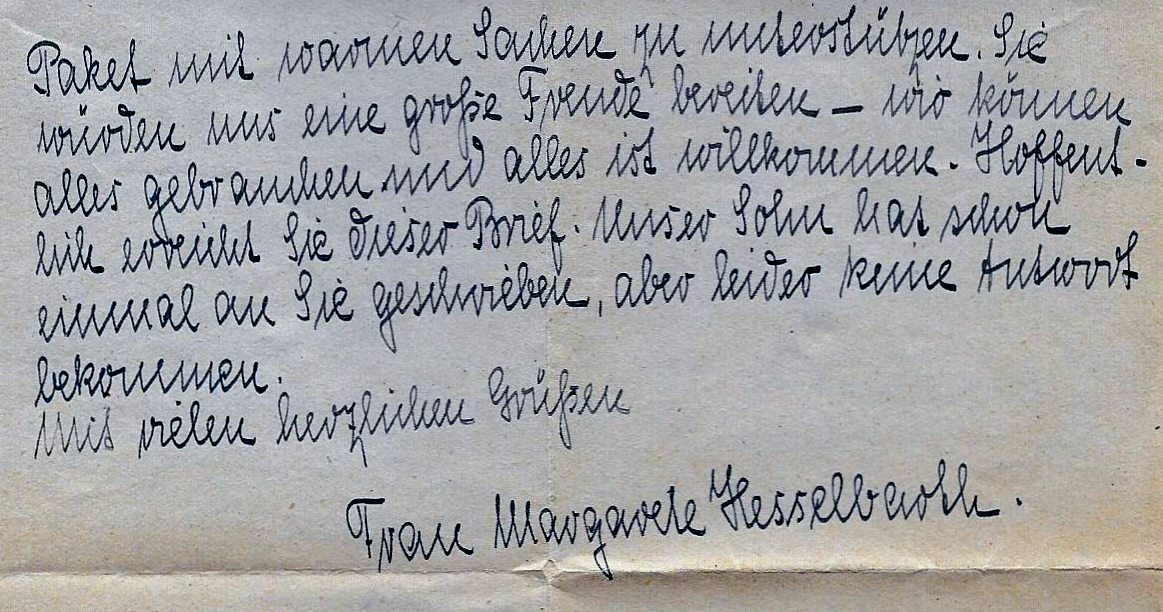 Paket mit warmen Sachen zu unterstützen. Sie
würden uns eine große Freude bereiten – wir können
alles gebrauchen und alles ist willkommen. Hoffent-
lich erreicht Sie dieser Brief. Unser Sohn hat schon
einmal an Sie geschrieben, aber leider keine Antwort
bekommen.
Mit vielen herzlichen Grüßen
Frau Margarete Hesselbarth.